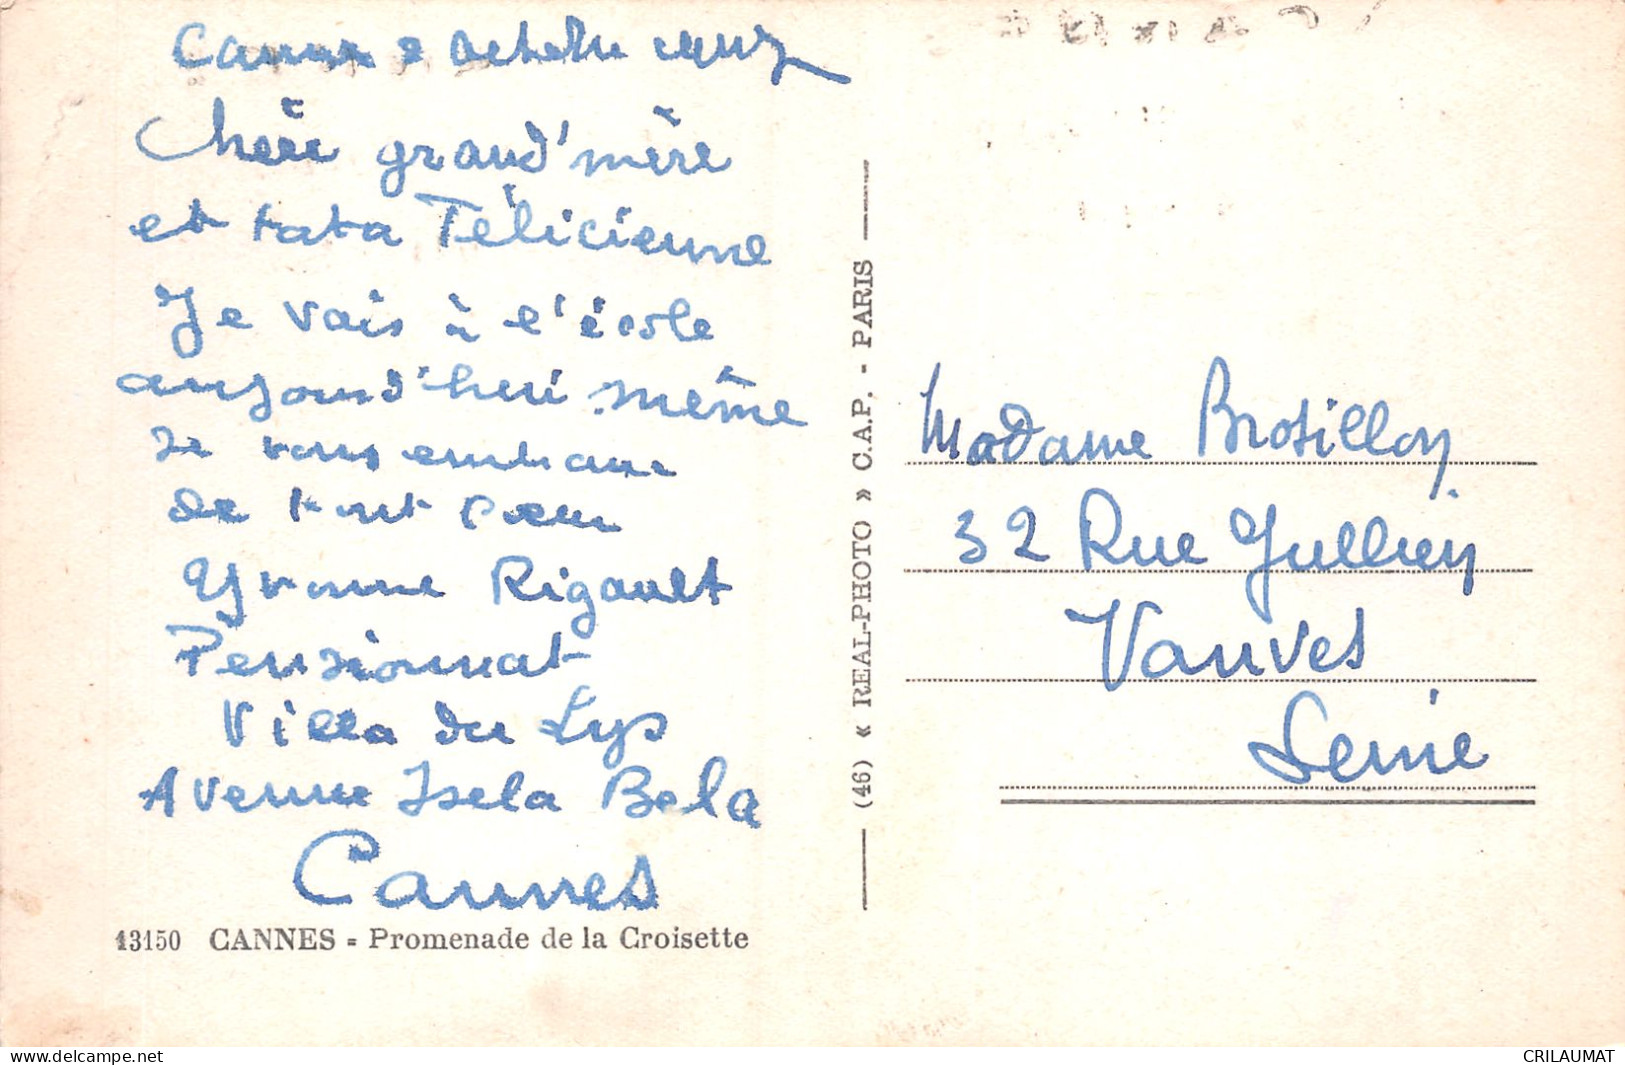 Cannes 2 octobre
Chère grand'mère
et tata Félicienne
Je vais à l'école
aujourd'hui même
Je vous embrasse
de tout cœur
Yvonne Rigault
Pensionnat
Villa du Lys
Avenue Isola Bela
Cannes
13150 CANNES - Promenade de la Croisette
(46) « REAL-PHOTO » C.A.P. - PARIS
Madame Brosillon
32 Rue Jullien
Vanves
Seine
www.delcampe.net
CRILAUMAT